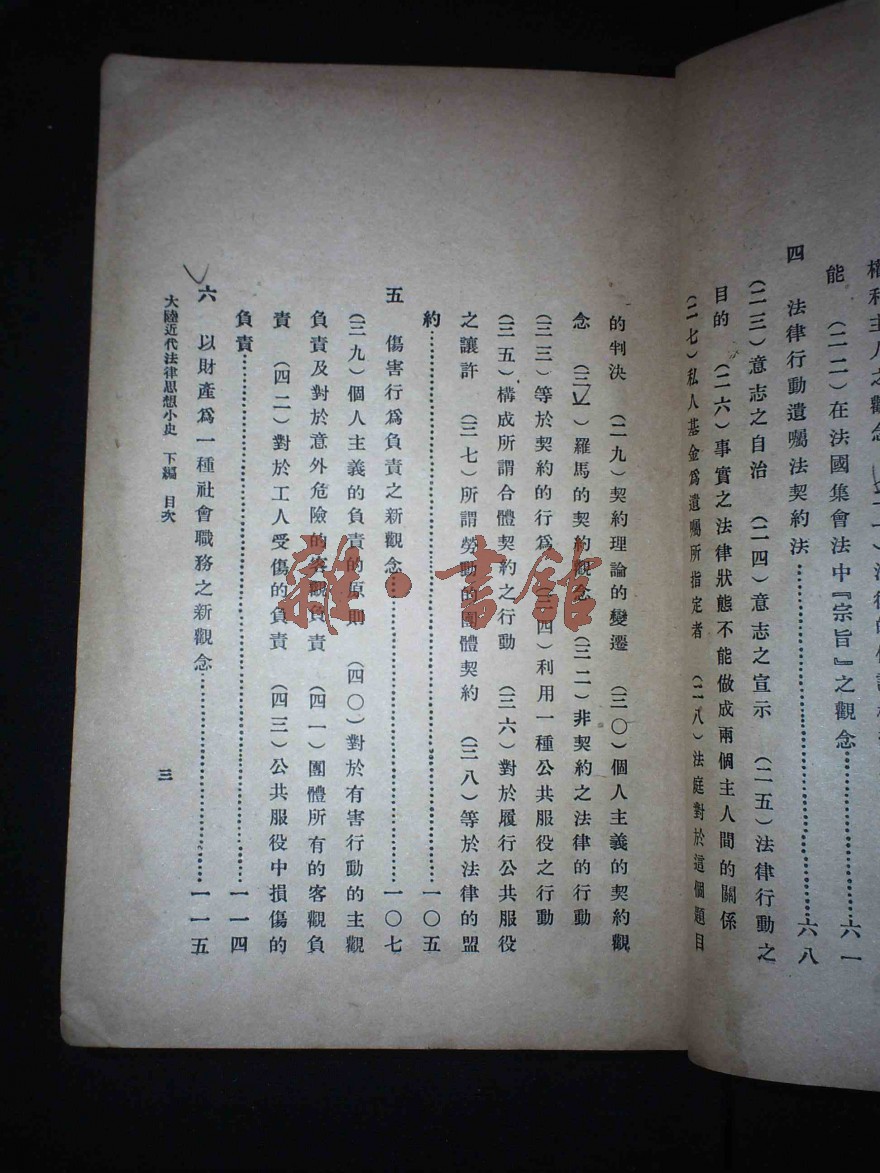 權利主人之觀念
能　(二二)在法國集會法中『宗旨』之觀念……六一
四　法律行動遺囑法契約法……六八
(二三)意志之自治　(二四)意志之宣示　(二五)法律行動之
目的　(二六)事實之法律狀態不能做成兩個主人間的關係
(二七)私人基金爲遺囑所指定者　(二八)法庭對於這個題目
的判決　(二九)契約理論的變遷　(三〇)個人主義的契約觀
念　(三一)羅馬的契約觀念　(三二)非契約之法律的行動
(三三)等於契約的行爲　(三四)利用一種公共服役之行動
(三五)構成所謂合體契約之行動　(三六)對於履行公共服役
之讓許　(三七)所謂勞動的團體契約　(三八)等於法律的盟
約……一〇五
五　傷害行爲負責之新觀念……一〇七
(三九)個人主義的負責的原則　(四〇)對於有害行動的主觀
負責及對於意外危險的客觀負責　(四一)團體所有的客觀負
責　(四二)對於工人受傷的負責　(四三)公共服役中損傷的
負責……一一四
六　以財產爲一種社會職務之新觀念……一一五
大陸近代法律思想小史　下編　目次
三
雜·書館